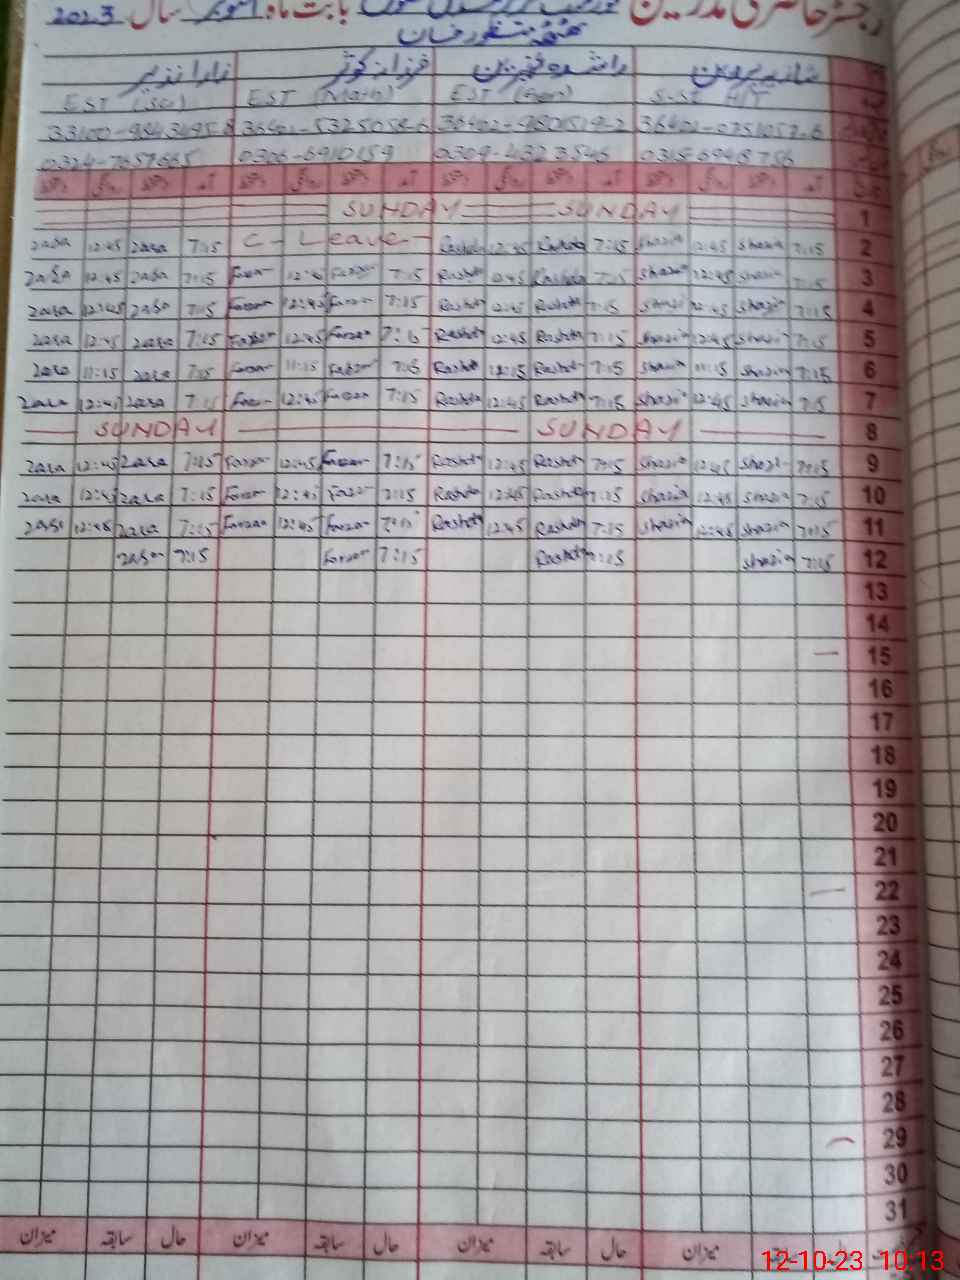 رجسٹر حاضری مدرسین بابت ماہ اکتوبر سال 2023
شازیہ پروین راشدہ نسرین فرزانہ کوثر زارا نذیر
EST (Sci) EST (Math) EST (Gen) S.S.E HT
0306-6910159 0309-4323546
SUNDAY SUNDAY 1
zara 12:45 zara 7:15 C - Leave Rashda 12:45 Rashda 7:15 Shazia 12:45 Shazia 7:15 2
zara 12:45 zara 7:15 Farzan 12:45 Farzan 7:15 Rashda 12:45 Rashda 7:15 Shazia 12:45 Shazia 7:15 3
zara 12:45 zara 7:15 Farzan 12:45 Farzan 7:15 Rashda 12:45 Rashda 7:15 Shazia 12:45 Shazia 7:15 4
zara 12:45 zara 7:15 Farzan 12:45 Farzan 7:15 Rashda 12:45 Rashda 7:15 Shazia 12:45 Shazia 7:15 5
zara 11:15 zara 7:15 Farzan 11:15 Farzan 7:15 Rashda Rashda 7:15 Shazia 11:15 Shazia 7:15 6
zara 12:45 zara 7:15 Farzan 12:45 Farzan 7:15 Rashda 12:45 Rashda 7:15 Shazia 12:45 Shazia 7:15 7
SUNDAY SUNDAY 8
zara 12:45 zara 7:15 Farzan 12:45 Farzan 7:15 Rashda 12:45 Rashda 7:15 Shazia 12:45 Shazia 7:15 9
zara 12:45 zara 7:15 Farzan 12:45 Farzan 7:15 Rashda 12:45 Rashda 7:15 Shazia 12:45 Shazia 7:15 10
zara 12:45 zara 7:15 Farzan 12:45 Farzan 7:15 Rashda 12:45 Rashda 7:15 Shazia 12:45 Shazia 7:15 11
zara 7:15 Farzan 7:15 Rashda 7:15 Shazia 7:15 12
13
14
15
16
17
18
19
20
21
22
23
24
25
26
27
28
29
30
31
حال سابقہ میزان حال سابقہ میزان حال سابقہ میزان میزان
12-10-23 10:13